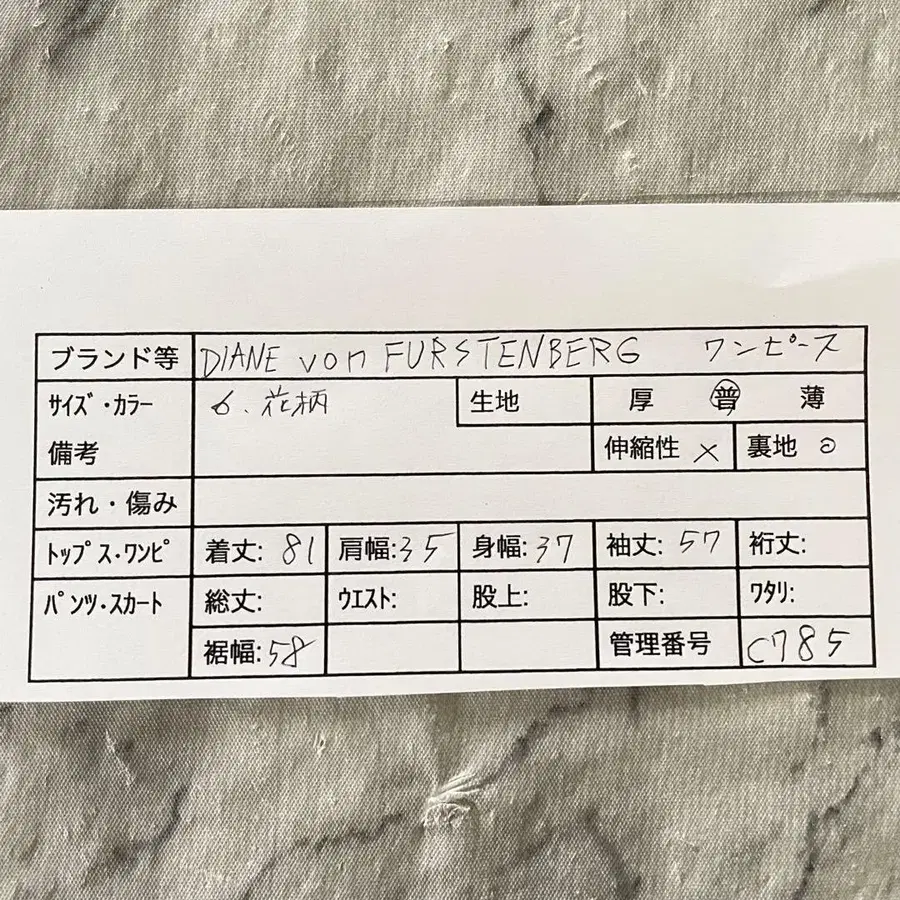 ブランド等 DIANE von FURSTENBERG ワンピース
サイズ・カラー 6、花柄 生地 厚 普 薄
備考 伸縮性 × 裏地 ○
汚れ・傷み
トップス・ワンピ 着丈: 81 肩幅: 35 身幅: 37 袖丈: 57 裄丈:
パンツ・スカート 総丈: ウエスト: 股上: 股下: ワタリ:
裾幅: 58 管理番号 C785